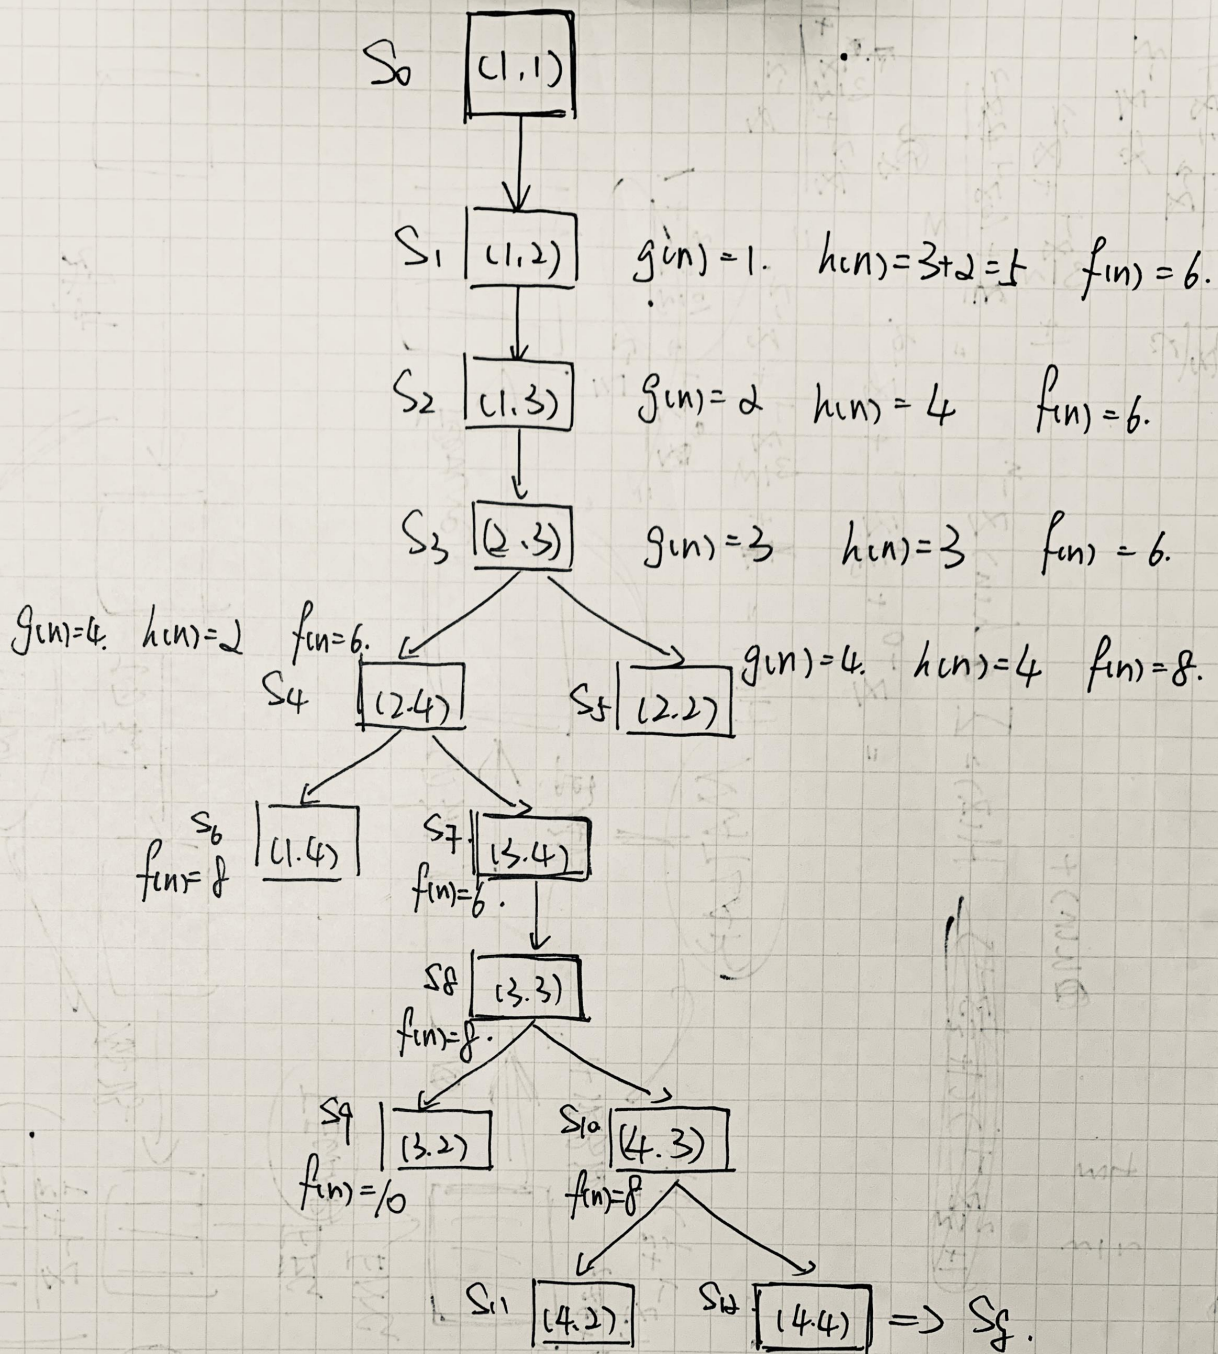 S0 (1,1)
S1 (1,2) g(n)=1. h(n)=3+2=5 f(n)=6.
S2 (1.3) g(n)=2 h(n)=4 f(n)=6.
S3 (2.3) g(n)=3 h(n)=3 f(n)=6.
g(n)=4. h(n)=2 f(n)=6.
S4 (2.4)
S5 (2.2) g(n)=4. h(n)=4 f(n)=8.
S6 (1.4)
f(n)=8
S7 (3.4)
f(n)=6.
S8 (3.3)
f(n)=8.
S9 (3.2)
f(n)=10
S10 (4.3)
f(n)=8
S11 (4.2)
S12 (4.4) => Sg.